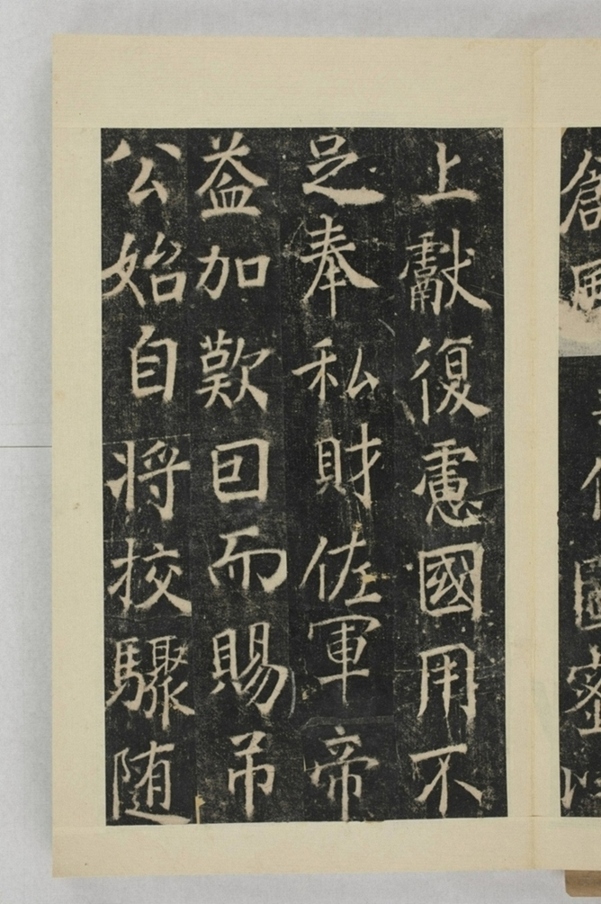 上獻復慮國用不
足奉私財佐軍帝
益加歎囙而賜吊
公始自將校驟随